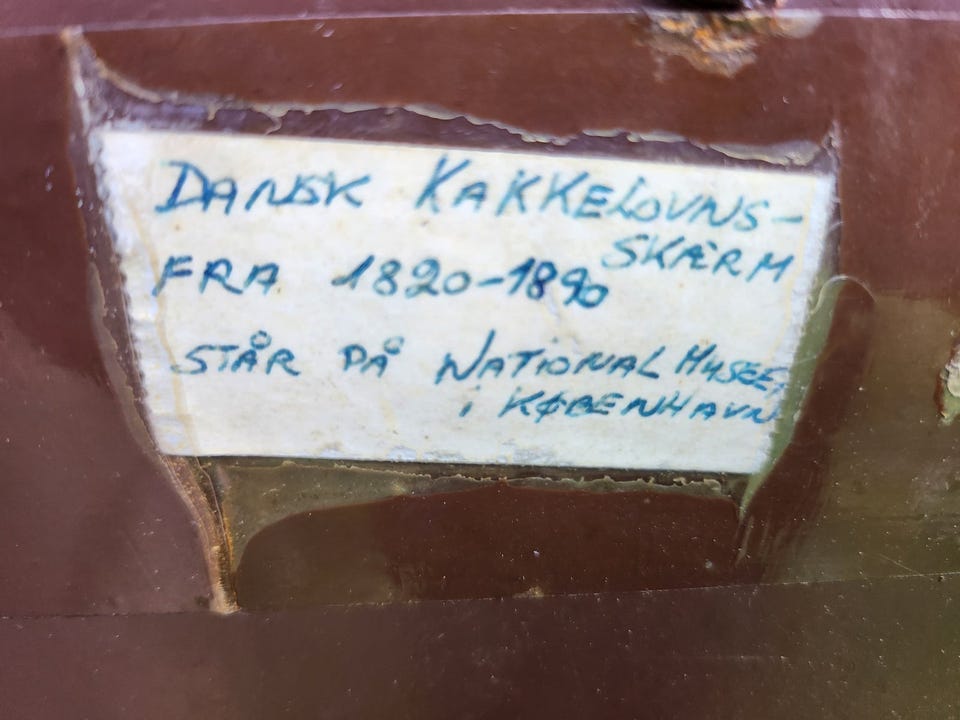 DANSK KAKKELOVNS-
SKÆRM
FRA 1820-1890
STÅR PÅ NATIONAL MUSEET
i KØBENHAVN